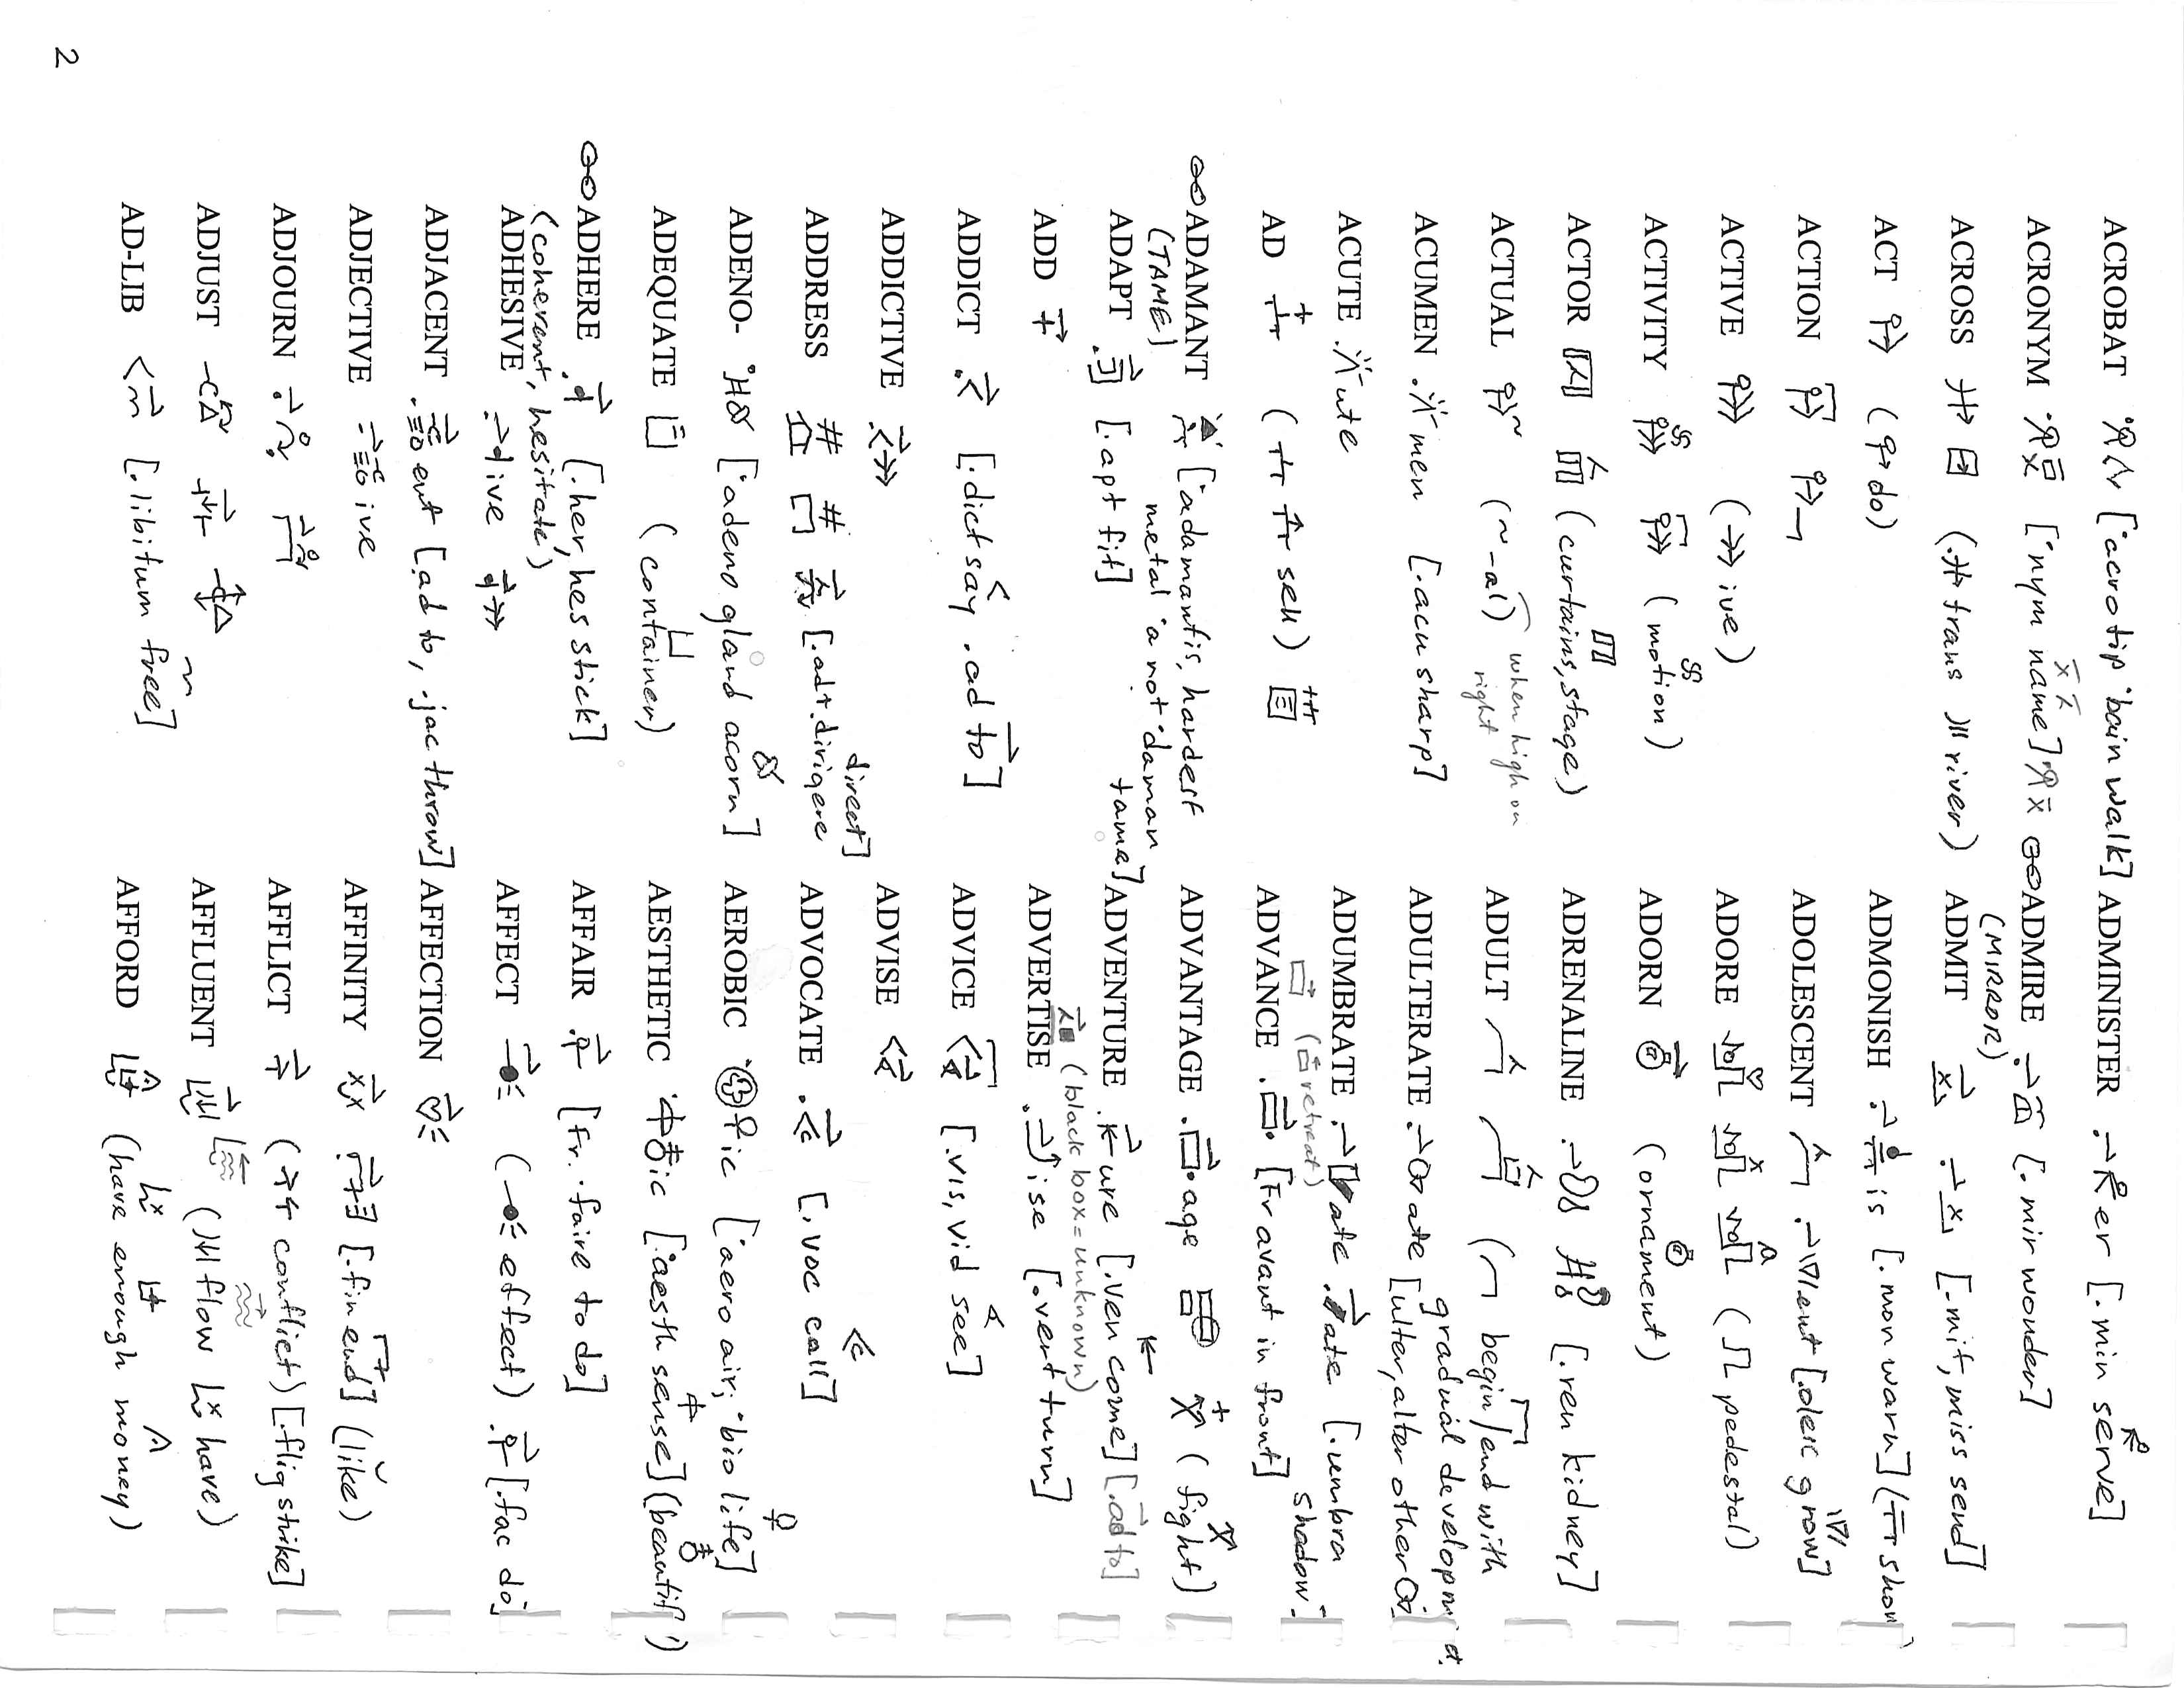 ACROBAT [˙acro tip ˙bain walk]
ACRONYM [˙nym name]
ACROSS (trans river)
ACT (do)
ACTION
ACTIVE (ive)
ACTIVITY (motion)
ACTOR (curtains, stage)
ACTUAL (~ -al) when high on
right
ACUMEN men [.acu sharp]
ACUTE ute
AD (sell)
ADAMANT [˙adamantis, hardest
(TAME) metal ˙a not ˙daman
tame]
ADAPT [.apt fit]
ADD
ADDICT [.dict say .ad to]
ADDICTIVE
ADDRESS # # [.ad+.dirigere
direct]
ADENO- [˙adeno gland acorn]
ADEQUATE (container)
ADHERE [.her, hes stick]
(coherent, hesitate)
ADHESIVE ive
ADJACENT ent [.ad to, .jac throw]
ADJECTIVE ive
ADJOURN
ADJUST
AD-LIB [.libitum free]
ADMINISTER er [.min serve]
ADMIRE [.mir wonder]
(MIRROR)
ADMIT [.mit, miss send]
ADMONISH is [.mon warn] (show)
ADOLESCENT ent [.olesc grow]
ADORE (pedestal)
ADORN (ornament)
ADRENALINE [.ren kidney]
ADULT (begin/end with
gradual developm't)
ADULTERATE ate [ulter, alter other]
ADUMBRATE ate ate [.umbra
shadow]
(retreat)
ADVANCE [Fr avant in front]
ADVANTAGE age (fight)
ADVENTURE ure [.ven come] [.ad to]
(black box = unknown)
ADVERTISE ise [.vert turn]
ADVICE [.vis, vid see]
ADVISE
ADVOCATE [.voc call]
AEROBIC ic [˙aero air, ˙bio life]
AESTHETIC ic [˙aesth sense] (beautif')
AFFAIR [Fr. .faire to do]
AFFECT (effect) [.fac do]
AFFECTION
AFFINITY [.fin end] (like)
AFFLICT (conflict) [.flig strike]
AFFLUENT (flow have)
AFFORD (have enough money)
2